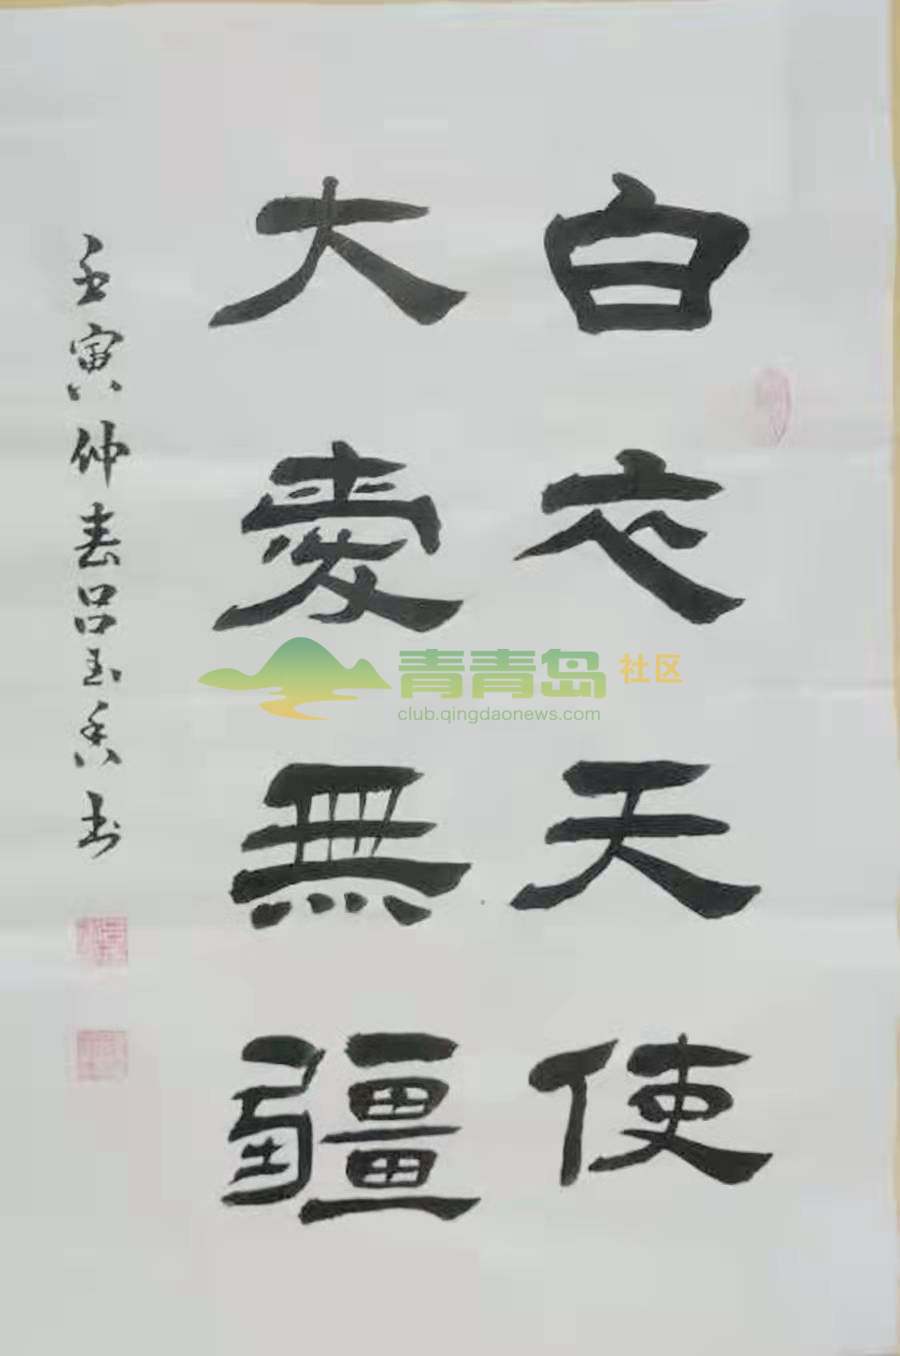 白衣天使
大愛無疆
壬寅仲春吕玉香书
青青岛社区
club.qingdaonews.com